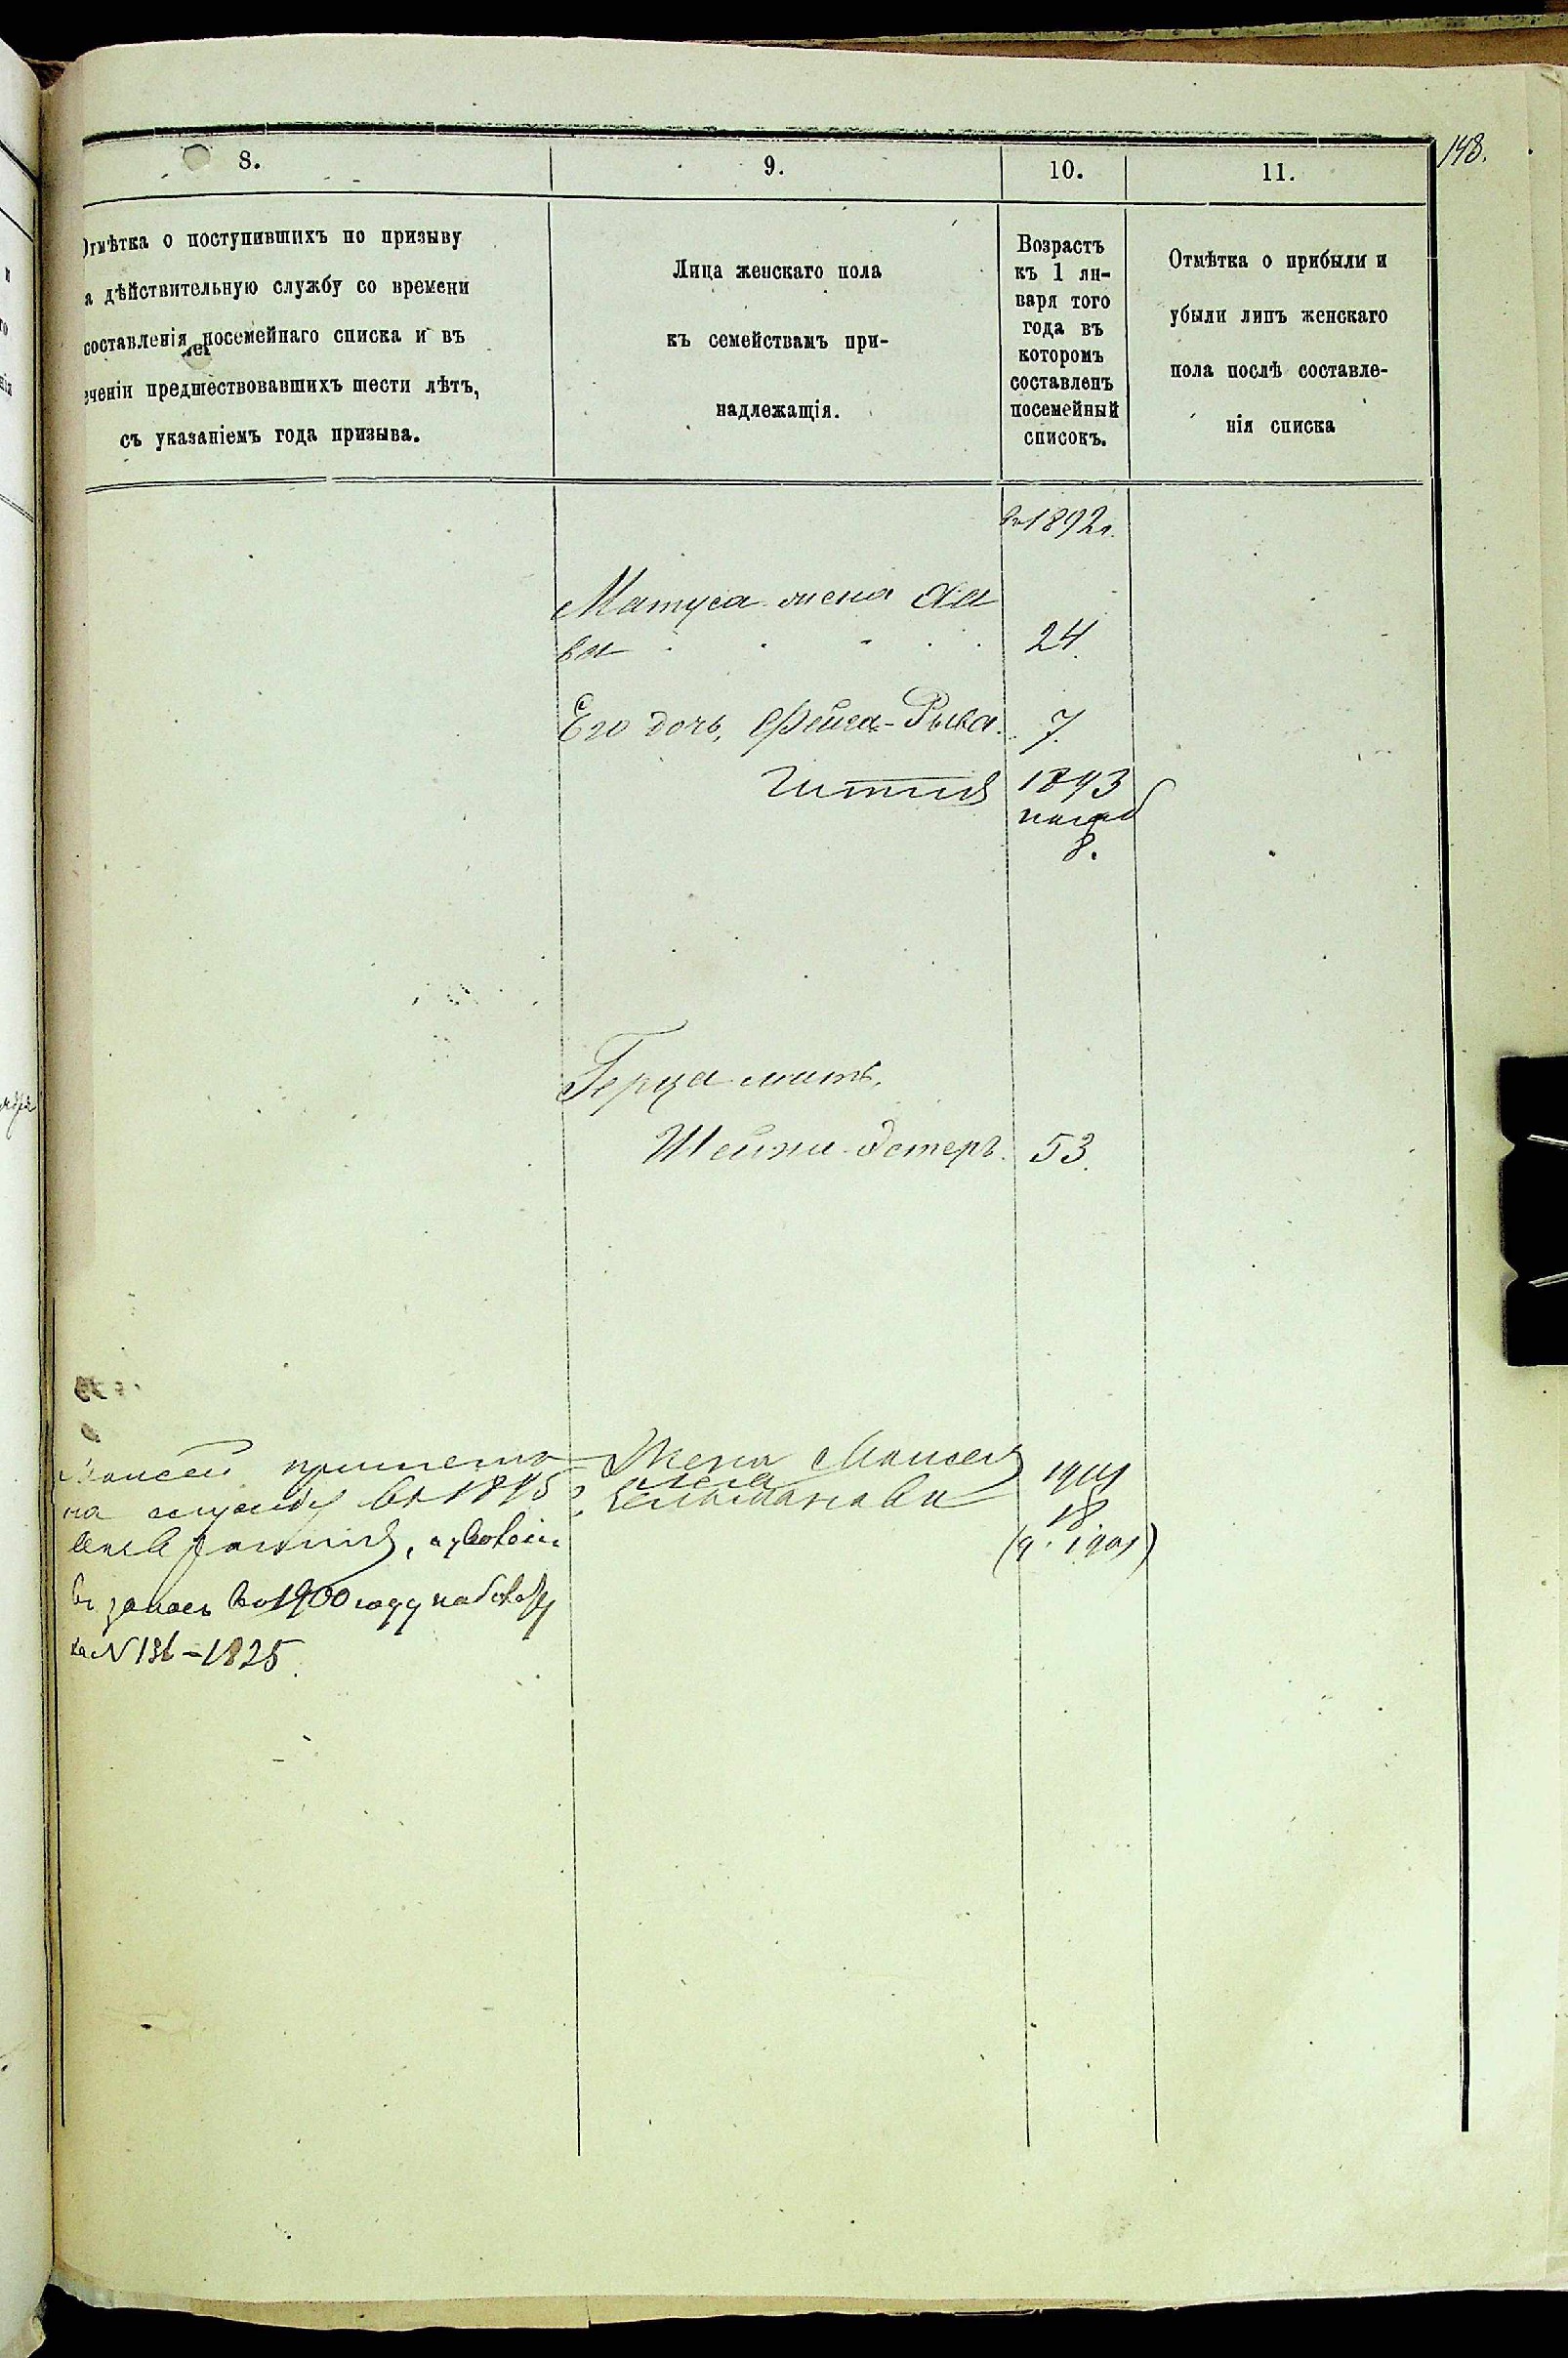 148.
8.
9.
10.
11.
Отмѣтка о поступившихъ по призыву
а дѣйствительную службу со времени
составленія посемейнаго списка и въ
еченіи предшествовавшихъ шести лѣтъ,
съ указаніемъ года призыва.
Лица женскаго пола
къ семействамъ при-
надлежащія.
Возрастъ
къ 1 ян-
варя того
года въ
которомъ
составленъ
посемейный
списокъ.
Отмѣтка о прибыли и
убыли лицъ женскаго
пола послѣ составле-
нія списка
въ 1892 г.
Матуса жена Ха
ва 24.
Его дочь, Фейга-Рыва. 7.
Гитля 1893
8.
Герца мать,
Шейна-Эстеръ. 53.
Моисей принятъ
на службу въ 1895 г.
въ запасъ въ 1900 году
N 136-1825.
Жена Моисея
1901
18
(ч. 1901)